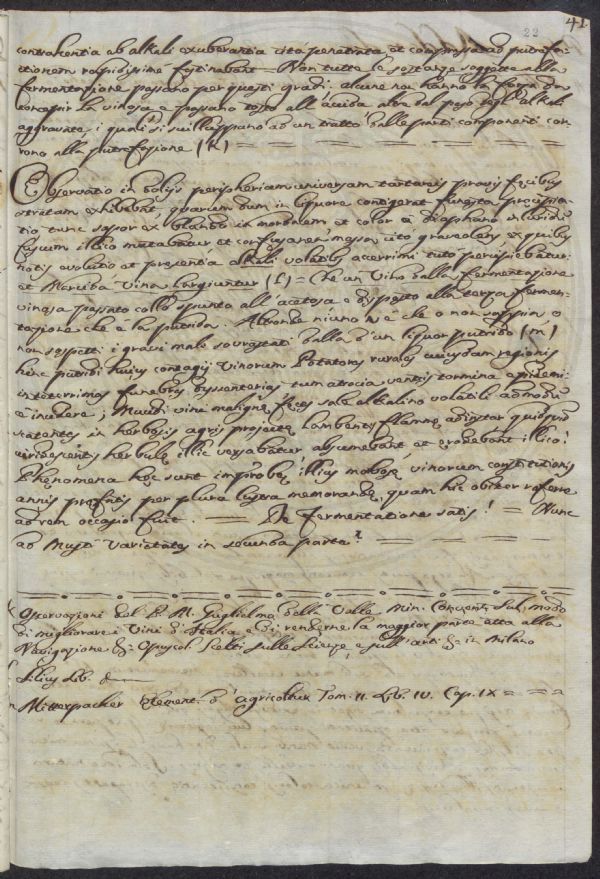 22 41
contrahentia ab alkali exuberantia cita penetrata, et compressa ad putrefa-
ctionem rapidissime festinabant = Non tutte le sostanze soggette alla
fermentazione passano per questi gradi: alcune non hanno la forza di
concepir la vinosa e passano tosto all'acida altre dal peso degli alkali
aggravate, i quali si sviluppano ad un tratto dalle parti componenti cor-
rono alla putrefazione (k) = = = = = = =
Observatio in doliis peripheriam universam tartareis provis fecibus
stratam exhibebat, quarum dum in liquore contigerat funesta precipita-
tio tunc sapor ex blando in mordacem et color ex diaphano in luridu
fuscum illico mutabatur et confusanea massa cito graveolens ex quibus
notis evolutio et presentia alkali volatilis acerrimi tuto percipiebatur:
et Marcida Vina largiuntur (l) = Che un Vino dalla fermentazione
vinosa passato collo spunto all'acetosa e disposto alla terza fermen-
tazione che è la putrida. Altronde niuno v'è che o non sappia o
non sospetti i gravi mali sovrastati dalla d'un liquor putrido (m)
hinc putridi huius contagii vinorum Potatores rurales cuiusdam regionis
interrimas funebres dyssenterias tum atrocia ventris tormina epidemi-
e incidere; Mundi vini maligne feces sale alkalino volatili admodu
scatentes in herbosis agris projecte lambentis flamme ad instar quidquid
viridescentis herbule illic versabatur, absumebant et erodebant illico:
Phenomena hec sunt improbe illius morbose vinorum constitutionis
annis preteritis per plura lustra memorande, quam hic obiter referre
ad rem occasio fuit. = De Fermentatione satis! = Nunc
ad Musti varietates in secunda parte. = = =
Osservazioni del P. M. Guglielmo della Valle Min. Convent. Sul modo
di migliorare i Vini d'Italia e di renderne la maggior parte atta alla
Navigazione &c. Opuscoli Scelti sulle Scienze, e sull'arti &c. in Milano
Silius Lib.
Mitterpacher Element. d'agricoltur. Tom. II. Lib. IV. Cap. IX = = =